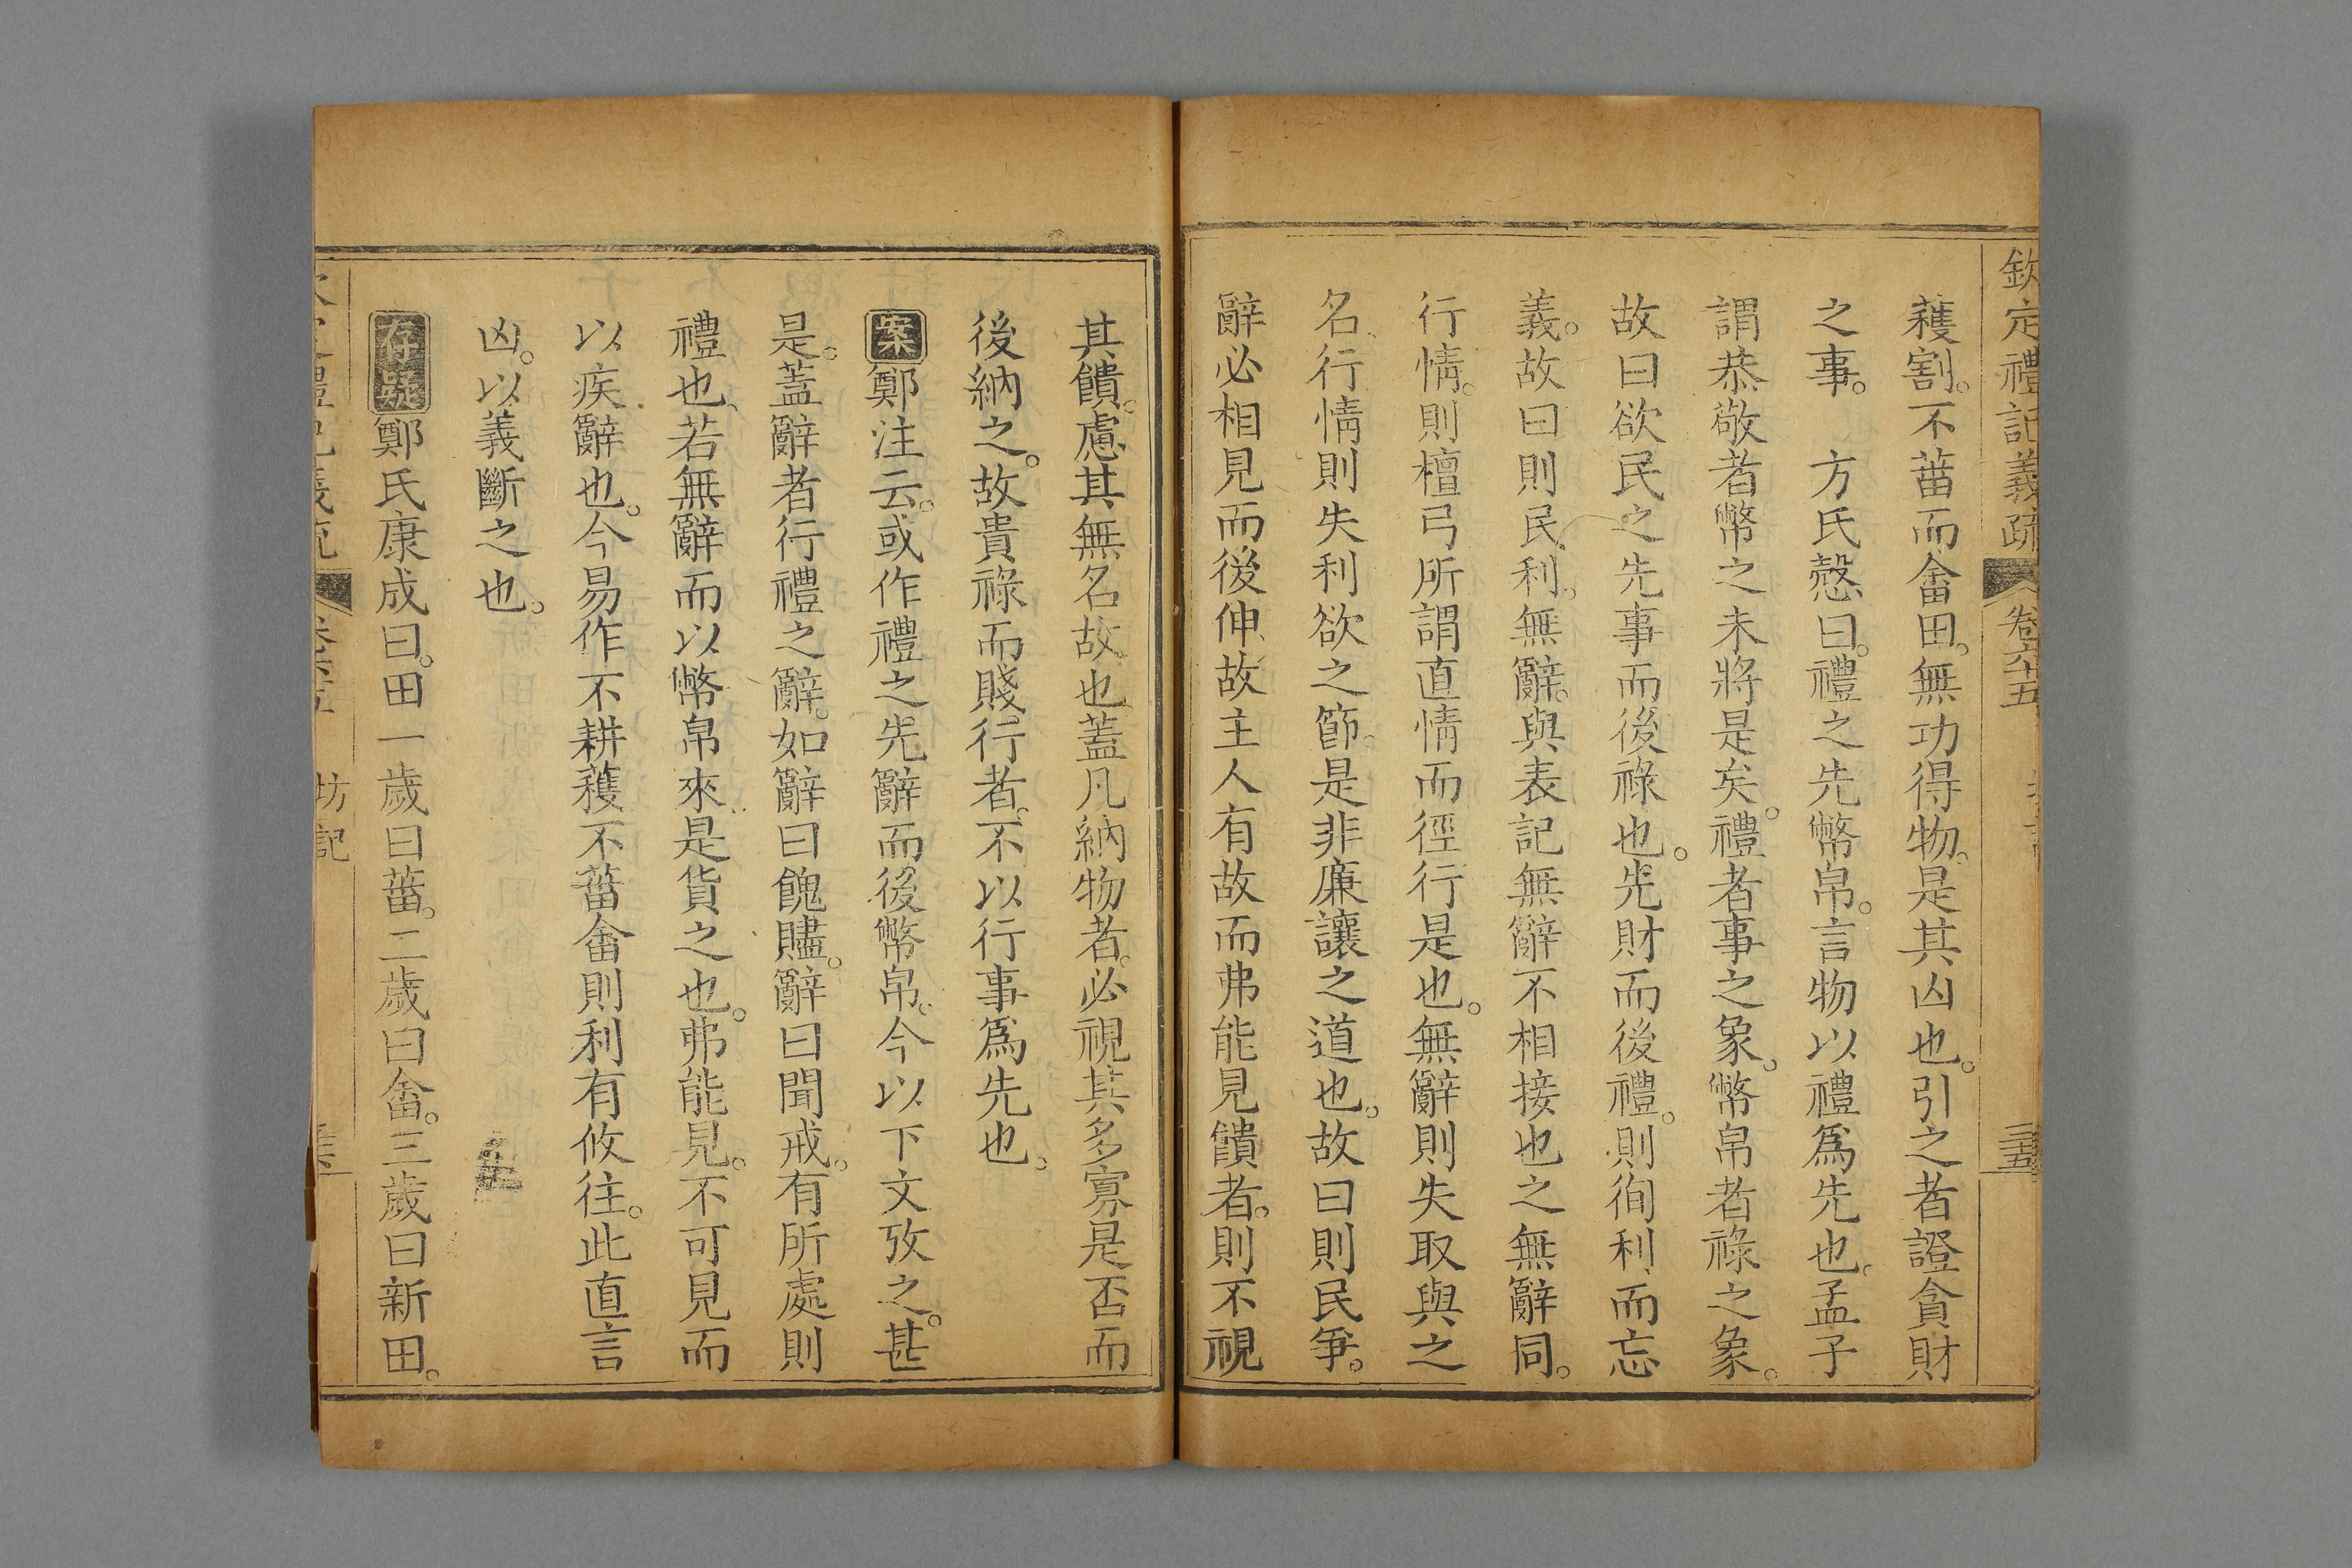 欽定禮記義疏 卷六十五 三五
穫割。不菑而畬田。無功得物。是其凶也。引之者證貪財
之事。 方氏慤曰。禮之先幣帛。言物以禮爲先也。孟子
謂恭敬者幣之未將是矣。禮者事之象。幣帛者祿之象。
故曰欲民之先事而後祿也。先財而後禮。則徇利而忘
義。故曰則民利。無辭。與表記無辭不相接也之無辭同。
行情。則檀弓所謂直情而徑行是也。無辭則失取與之
名。行情則失利欲之節。是非廉讓之道也。故曰則民爭。
辭必相見而後伸。故主人有故而弗能見饋者。則不視
其饋。慮其無名故也。蓋凡納物者。必視其多寡是否而
後納之。故貴祿而賤行者。不以行事爲先也。
案 鄭注云。或作禮之先辭而後幣帛。今以下文攷之。甚
是。蓋辭者行禮之辭。如辭曰餽贐。辭曰聞戒。有所處則
禮也。若無辭而以幣帛來。是貨之也。弗能見。不可見而
以疾辭也。今易作不耕穫不菑畬則利有攸往。此直言
凶。以義斷之也。
存疑 鄭氏康成曰。田一歲曰菑。二歲曰畬。三歲曰新田。
坊記